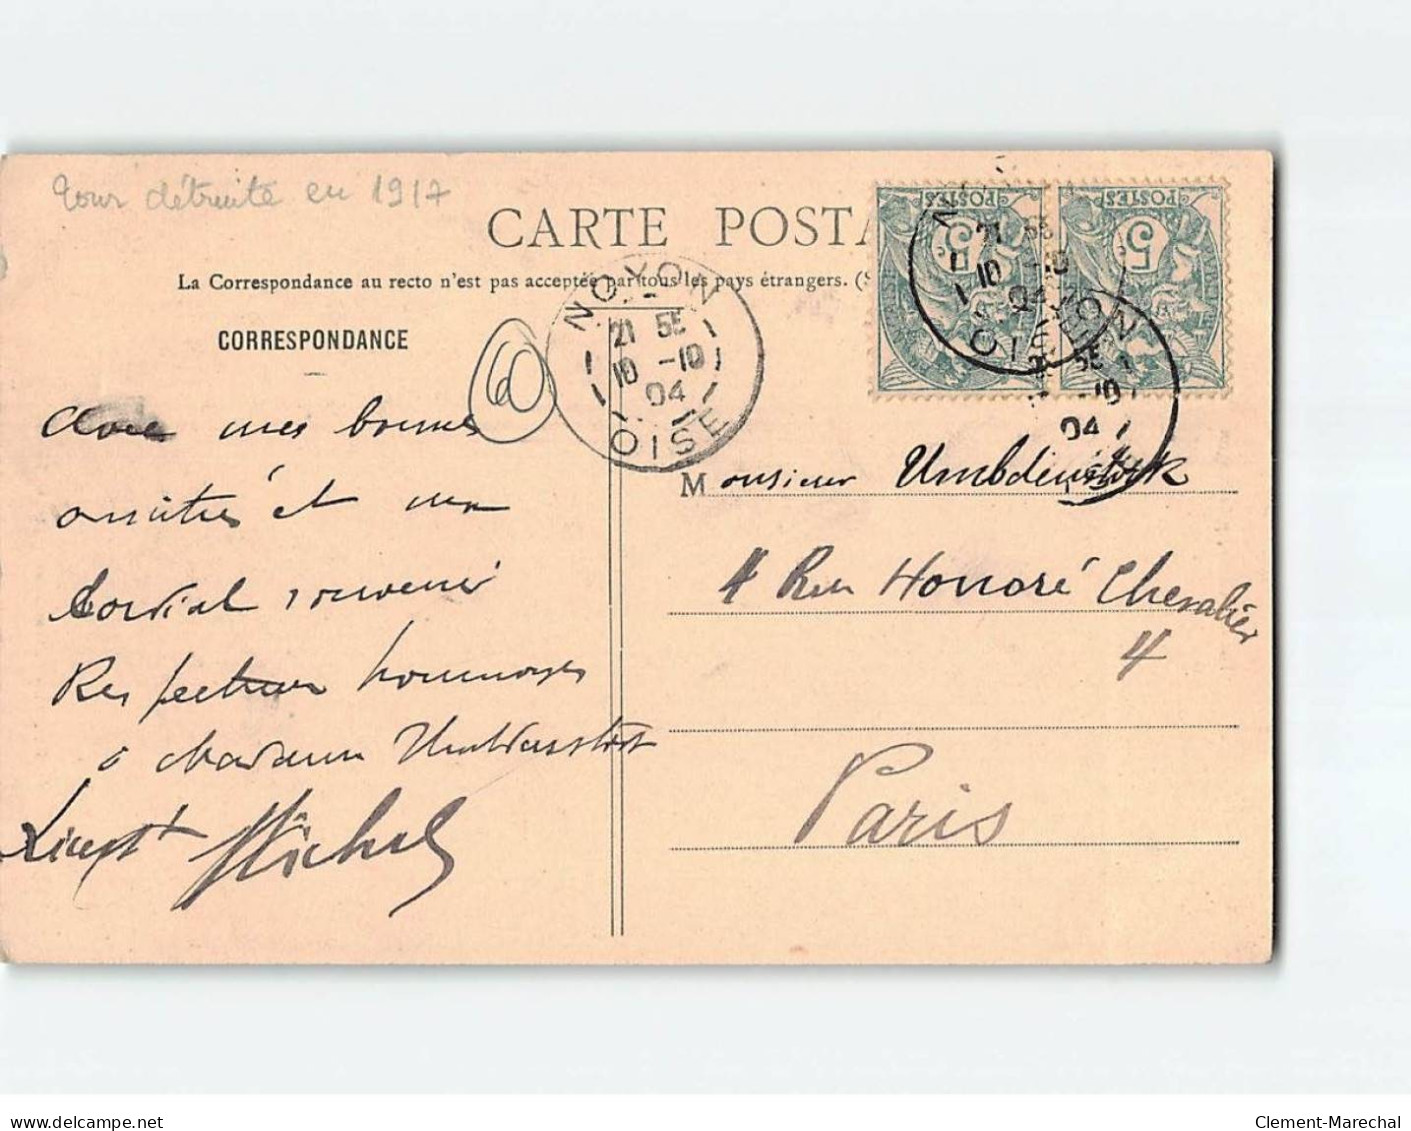 Tour détruite en 1917
CARTE POSTA
La Correspondance au recto n'est pas acceptée par tous les pays étrangers. (S
CORRESPONDANCE
60
NOYON
21 SE
10 -10
04
OISE
POSTES
5
POSTES
5
21 SE
10 -10
04
OISE
SE
-10
04
Avec mes bonnes
amitiés et mon
cordial souvenir
Respectueux hommages
à Madame Umbdenstock
Lieut Michel
Monsieur Umbdenstock
4 Rue Honoré Chevalier
4
Paris
www.delcampe.net
Clement-Marechal